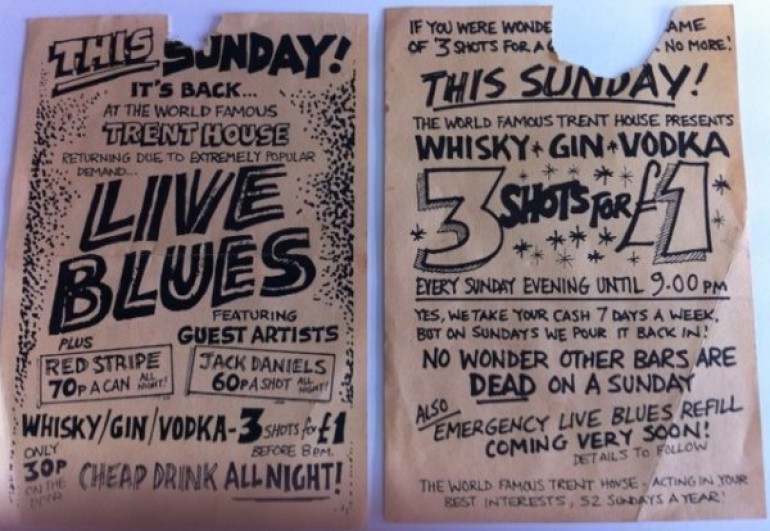 THIS SUNDAY!
IT'S BACK...
AT THE WORLD FAMOUS
TRENT HOUSE
RETURNING DUE TO EXTREMELY POPULAR
DEMAND...
LIVE
BLUES
FEATURING
GUEST ARTISTS
PLUS
RED STRIPE
70P A CAN ALL NIGHT!
JACK DANIELS
60P A SHOT ALL NIGHT!
WHISKY/GIN/VODKA-3 SHOTS for £1
BEFORE 8PM.
ONLY
30P
ON THE
DOOR
CHEAP DRINK ALL NIGHT!
IF YOU WERE WONDE AME
OF '3 SHOTS FOR A NO MORE!
THIS SUNDAY!
THE WORLD FAMOUS TRENT HOUSE PRESENTS
WHISKY * GIN * VODKA
3 SHOTS FOR £1
EVERY SUNDAY EVENING UNTIL 9.00 PM
YES, WE TAKE YOUR CASH 7 DAYS A WEEK,
BUT ON SUNDAYS WE POUR IT BACK IN!
NO WONDER OTHER BARS ARE
DEAD ON A SUNDAY
ALSO
EMERGENCY LIVE BLUES REFILL
COMING VERY SOON!
DETAILS TO FOLLOW
THE WORLD FAMOUS TRENT HOUSE - ACTING IN YOUR
BEST INTERESTS, 52 SUNDAYS A YEAR!